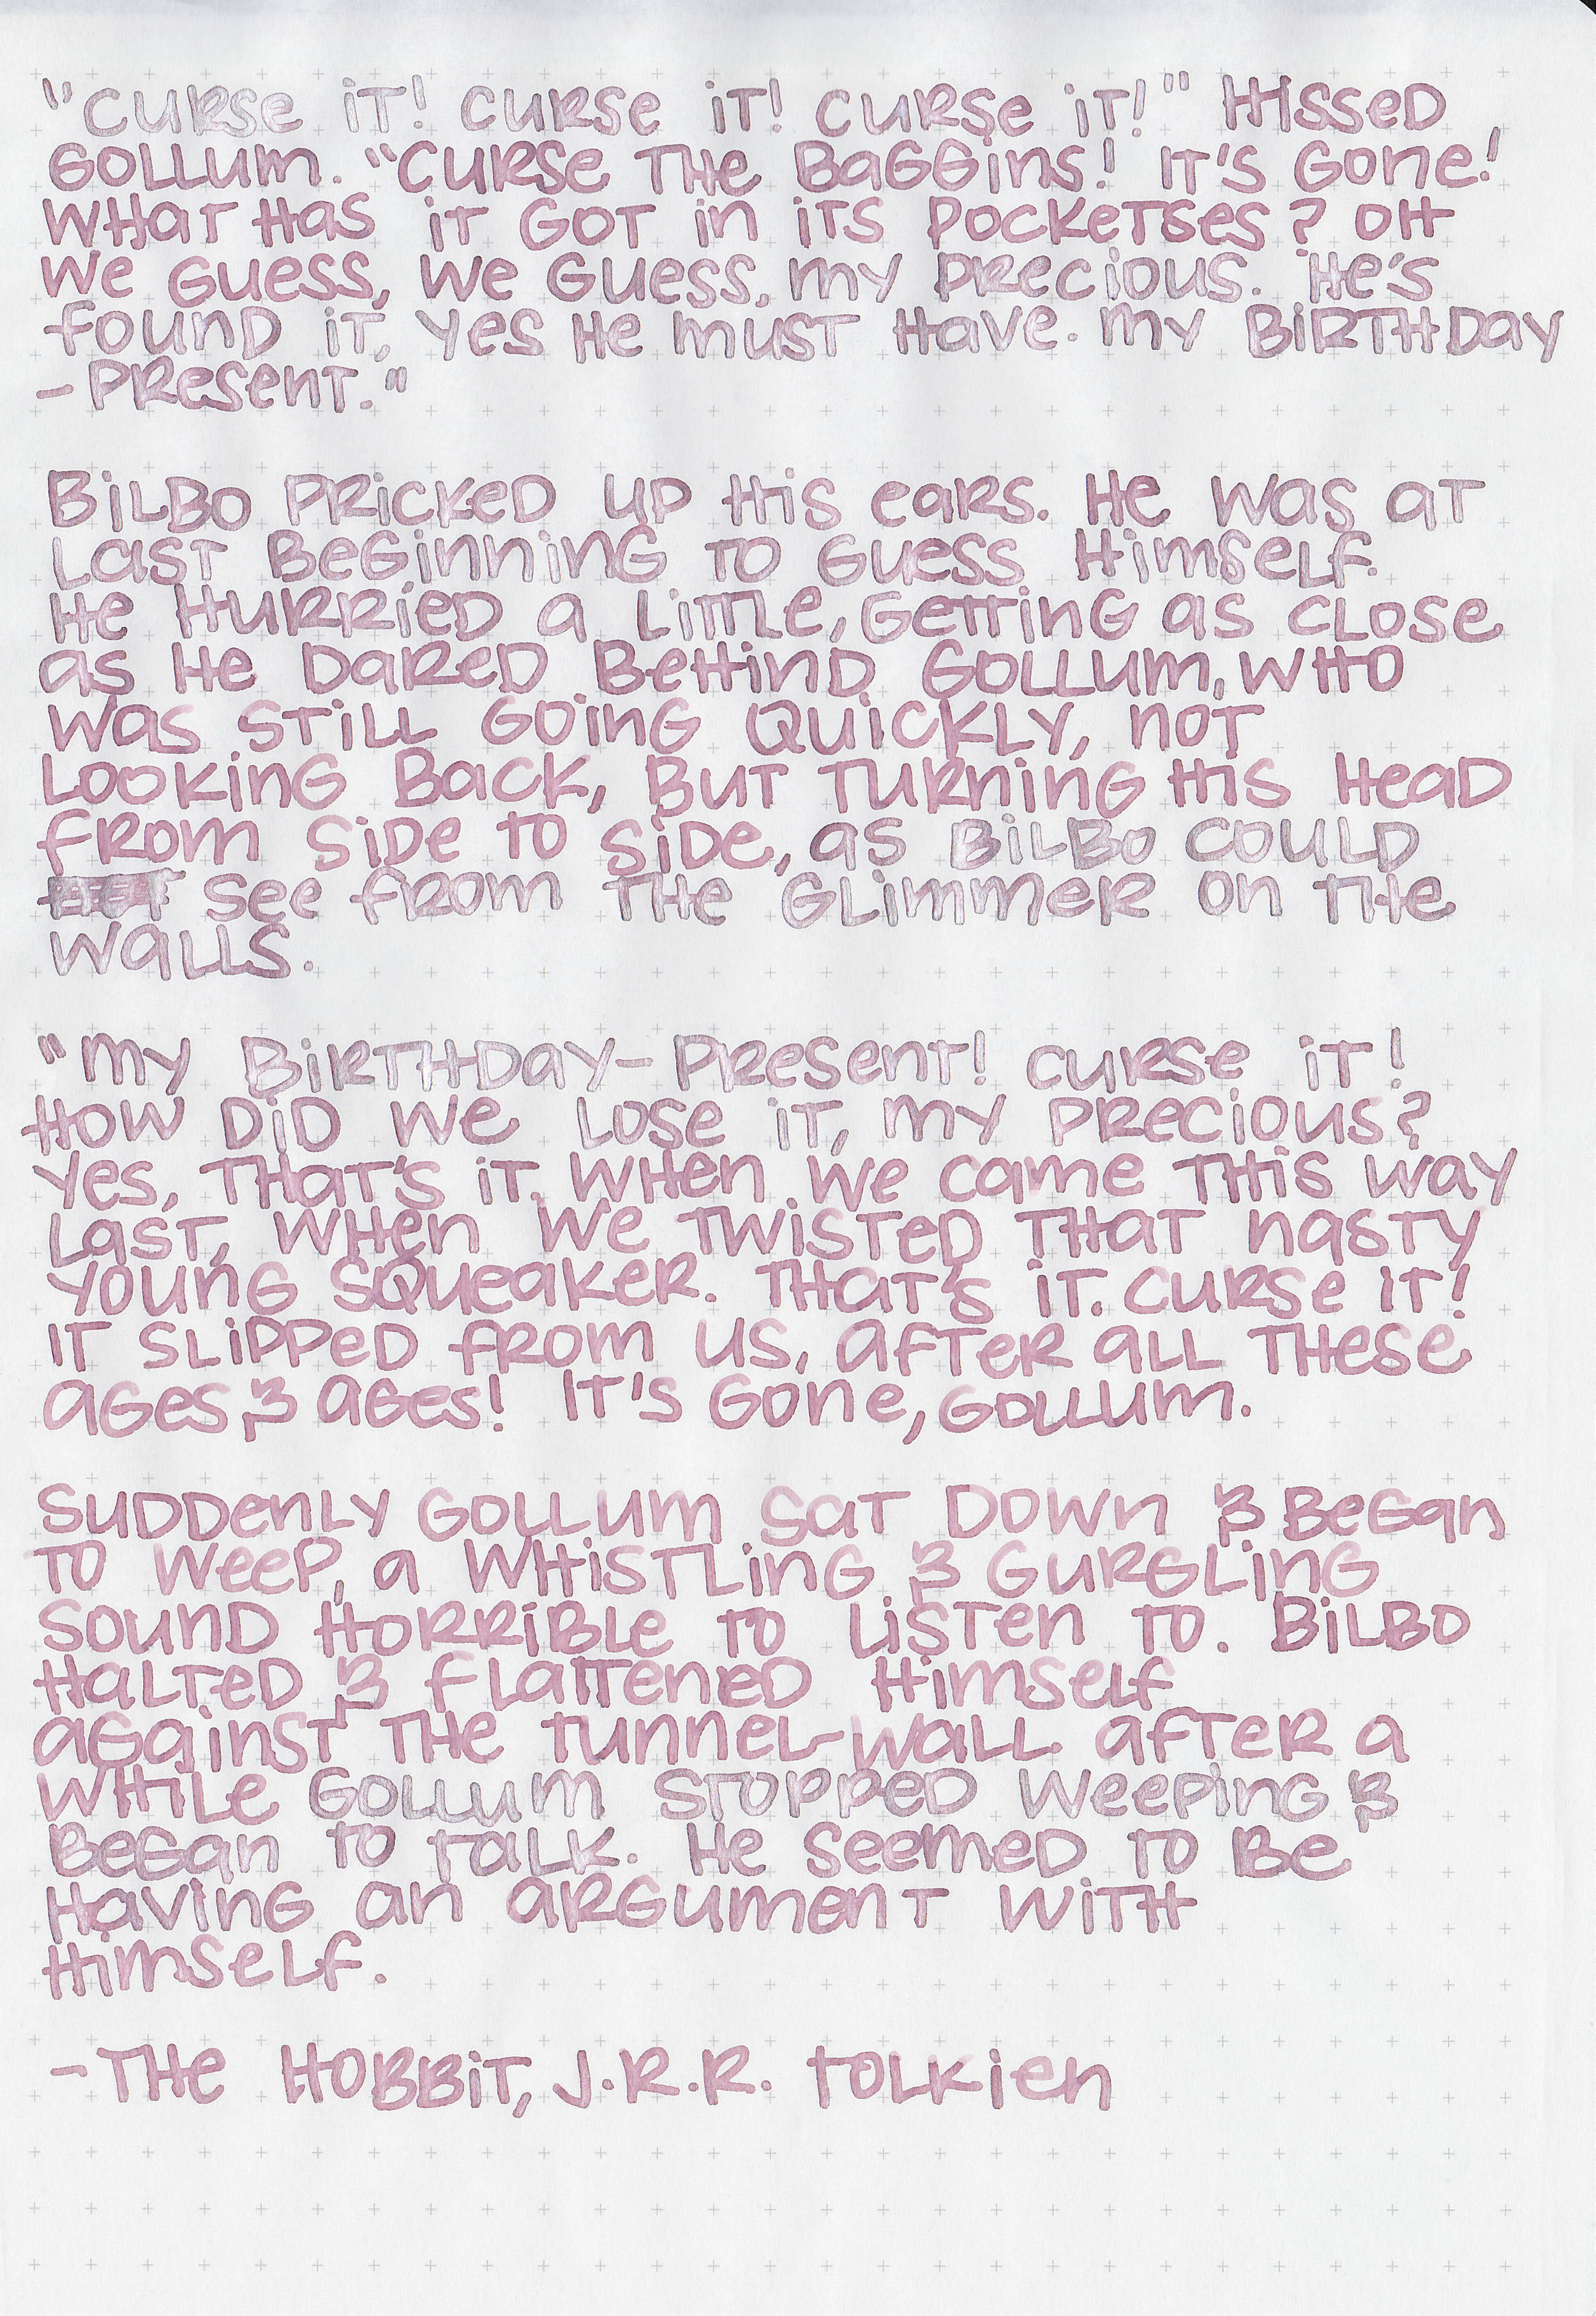 "Curse it! Curse it! Curse it!" Hissed
Gollum. "Curse the Baggins! It's gone!
What has it got in its pocketses? Oh
we guess, we guess, my precious. He's
found it, yes he must have. My birthday
-present."
Bilbo pricked up his ears. He was at
last beginning to guess himself.
He hurried a little, getting as close
as he dared behind Gollum, who
was still going quickly, not
looking back, but turning his head
from side to side, as Bilbo could
see from the glimmer on the
walls.
"My birthday-present! Curse it!
How did we lose it, my precious?
Yes, that's it. When we came this way
last, when we twisted that nasty
young squeaker. That's it. Curse it!
It slipped from us, after all these
ages & ages! It's gone, gollum.
Suddenly Gollum sat down & began
to weep, a whistling & gurgling
sound horrible to listen to. Bilbo
halted & flattened himself
against the tunnel-wall. After a
while Gollum stopped weeping &
began to talk. He seemed to be
having an argument with
himself.
-The Hobbit, J.R.R. Tolkien